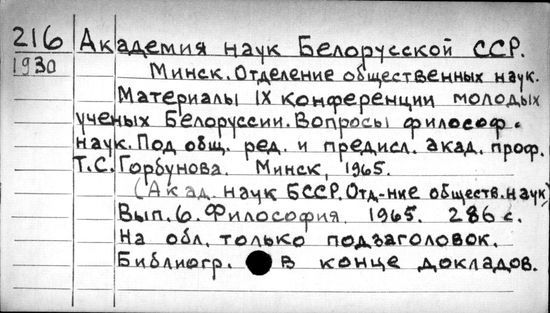 216 Академия наук Белорусской ССР.
1930 Минск. Отделение общественных наук.
Материалы IX конференции молодых
ученых Белоруссии. Вопросы философ.
наук. Под общ. ред. и предисл. акад. проф.
Т.С. Горбунова. Минск, 1965.
(Акад. наук БССР. Отд-ние обществ. наук)
Вып. 6. Философия. 1965. 286 с.
На обл. только подзаголовок.
Библиогр. в конце докладов.